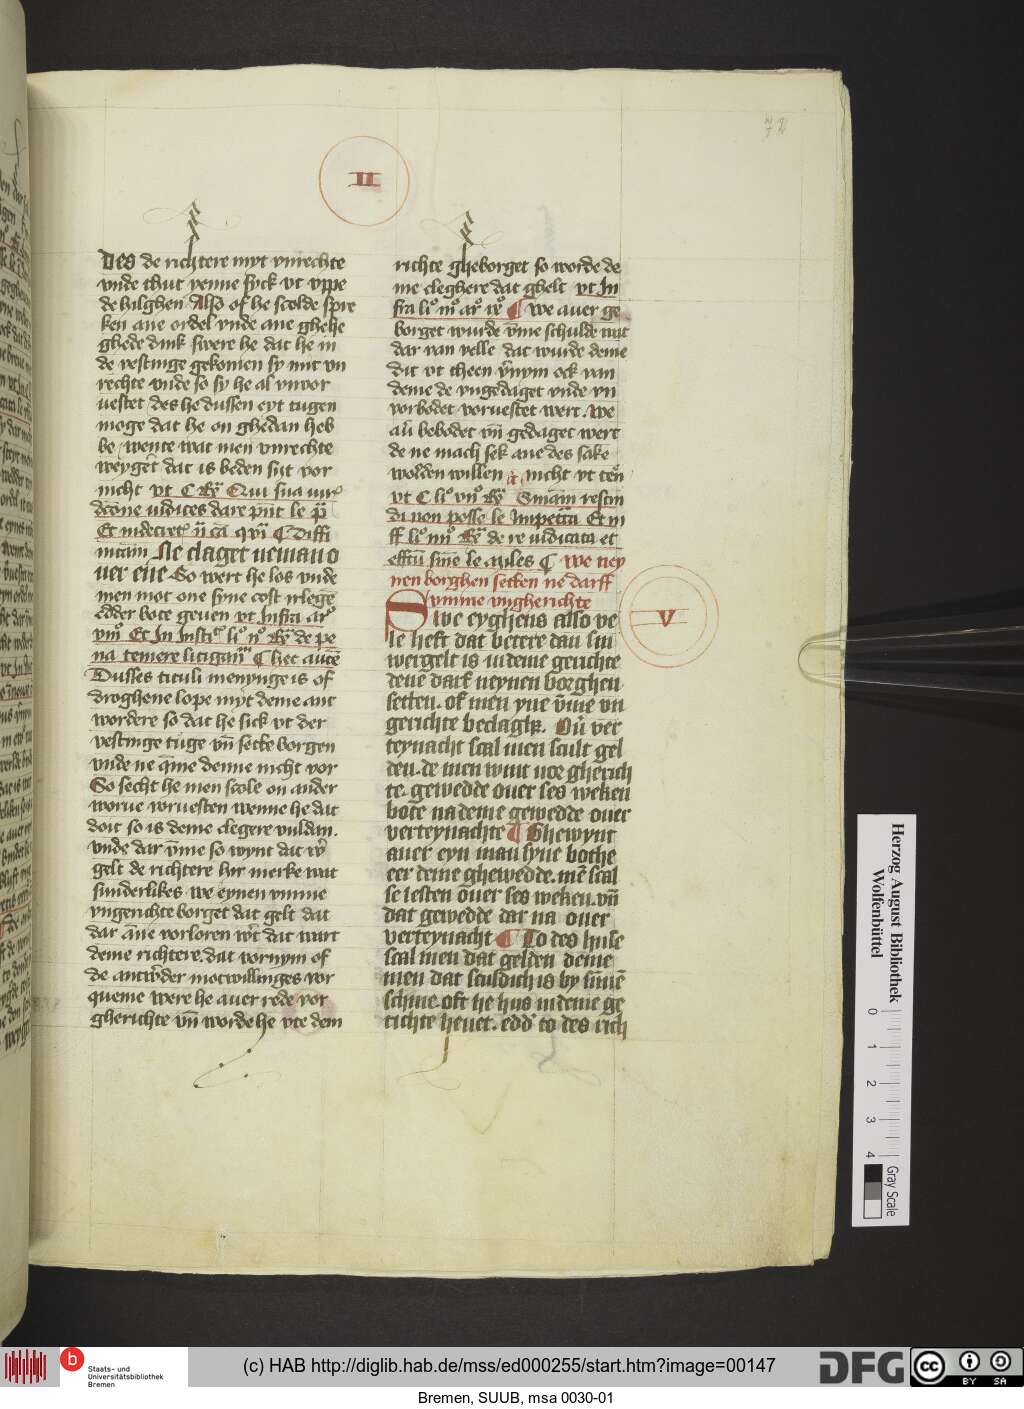 72
II
Des de richtere myt vnrechte
vnde thut yenne syck vt vppe
de hilghen Also of he scolde spre
ken ane ordel vnde ane ghehe
ghede dink swere he dat he in
de vestinge gekomen sy mit vn
rechte vnde so sy he al vnvor
uestet des he dussen eyt tugen
moge dat he on ghedan heb
be wente wat men vnrechte
weyget dat is beden sut vor
nicht vt C
dare
Et
Ne claget neman o
uer ene So wert he los vnde
men mot one syne cost irlege
edder bote geuen vt Infra ar
Et In
na temere litigan ¶ hec
Dusses tituli menynge is of
droghene lope myt deme ant
wordere so dat he sick vt der
vestinge tuge vn̄ sette borgen
vnde ne q̄me denne nicht vor
So secht he men scole on ander
worue voruesten wenne he dat
doit so is deme clegere vuldan.
vnde dar v̄me so wynt dat
gelt de richtere hir merke wat
sunderlikes we eynen vmme
vngerichte borget dat gelt dat
dar āne vorloren w̄t dat wart
deme richtere. dat vornym of
de antw̄der motwillinges vor
queme were he auer rede vor
gherichte vn̄ worde he vte dem
richte gheborget so worde de
me cleghere dat ghelt vt In
fra li° iii° ar° ¶ we auer ge
borget wurde v̄me schulde wat
dar van velle dat wurde deme
dit vt theen v̄nym ock van
deme de vngedaget vnde vn
vorbodet voruestet wert. we
au̅ bebodet vn̄ gedaget wert
de ne mach sek ane des sake
wolden willen nicht vt ten
vt C li° vii°
di non posse le Et
ff li° de re iudicata et
le miles ¶ we ney
nen borghen setten ne darff
vmme vngherichte
V
Swe eyghens also ve
le heft dat betere dan sin
wergelt is in deme gerichte
dene darf neynen borghen
setten. of men yne v̄me vn
gerichte beclaget. Ou̅ ver
teynacht scal men scult gel
den. de men wint vor gherich
te. gewedde ouer ses weken
bote na deme gewedde ouer
verteynachte ¶ Ghewynt
auer eyn man syne bothe
eer deme ghewedde. me̅ scal
se lesten ou̅er ses weken. vn̄
dat gewedde dar na ouer
verteynacht ¶ To des huse
scal men dat gelden deme
men dat sculdich is by su̅ne̅
schine. oft he hus in deme ge
richte heuet. edd̄ to des rich
Herzog August Bibliothek
Wolfenbüttel
0 1 2 3 4
Gray Scale
b
Staats- und
Universitätsbibliothek
Bremen
(c) HAB http://diglib.hab.de/mss/ed000255/start.htm?image=00147
DFG
cc BY SA
Bremen, SUUB, msa 0030-01